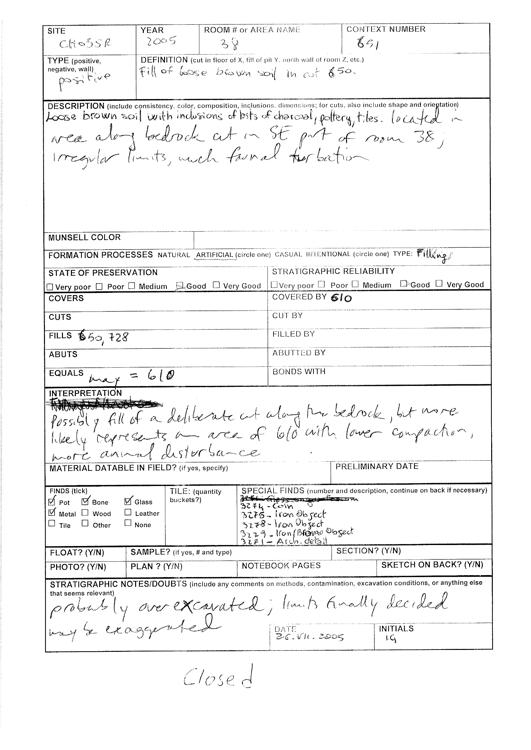 SITE YEAR ROOM # or AREA NAME CONTEXT NUMBER
CH05SR 2005 38 651
TYPE (positive, negative, wall) DEFINITION (cut in floor of X, fill of pit Y, north wall of room Z, etc.)
positive Fill of loose brown soil in cut 650.
DESCRIPTION (include consistency, color, composition, inclusions, dimensions; for cuts, also include shape and orientation)
Loose brown soil with inclusions of lots of charcoal, pottery, tiles. Located in
area along bedrock cut in SE part of room 38,
irregular limits, much faunal turbation
MUNSELL COLOR
FORMATION PROCESSES NATURAL ARTIFICIAL (circle one) CASUAL INTENTIONAL (circle one) TYPE: Filling
STATE OF PRESERVATION STRATIGRAPHIC RELIABILITY
Very poor Poor Medium Good Very Good Very poor Poor Medium Good Very Good
COVERS COVERED BY 610
CUTS CUT BY
FILLS 650, 728 FILLED BY
ABUTS ABUTTED BY
EQUALS may = 610 BONDS WITH
INTERPRETATION
Possibly fill of a deliberate cut along the bedrock, but more
likely represents an area of 610 with lower compaction,
more animal disturbance
MATERIAL DATABLE IN FIELD? (if yes, specify) PRELIMINARY DATE
FINDS (tick) TILE: (quantity buckets?) SPECIAL FINDS (number and description, continue on back if necessary)
Pot Bone Glass
Metal Wood Leather
Tile Other None
3274 - Coin
3275 - Iron Object
3278 - Iron Object
3279 - Iron/Bronze Object
3271 - Arch. detail
FLOAT? (Y/N) SAMPLE? (if yes, # and type) SECTION? (Y/N)
PHOTO? (Y/N) PLAN ? (Y/N) NOTEBOOK PAGES SKETCH ON BACK? (Y/N)
STRATIGRAPHIC NOTES/DOUBTS (include any comments on methods, contamination, excavation conditions, or anything else that seems relevant)
probably overexcavated; limits finally decided
may be exaggerated
DATE INITIALS
26.VII.2005 IG
Closed